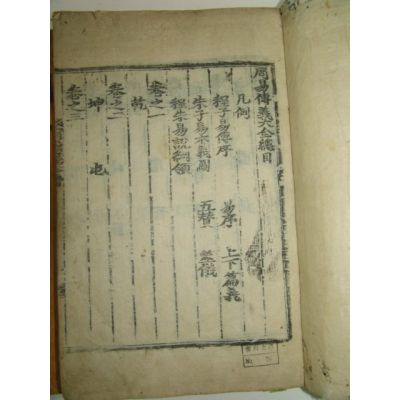 周易傳義大全總目
凡例
程子易傳序 易序 上下篇義
朱子易本義圖 五贊 筮儀
程朱易說綱領
卷之一
乾
卷之二
坤 屯
卷之三
No